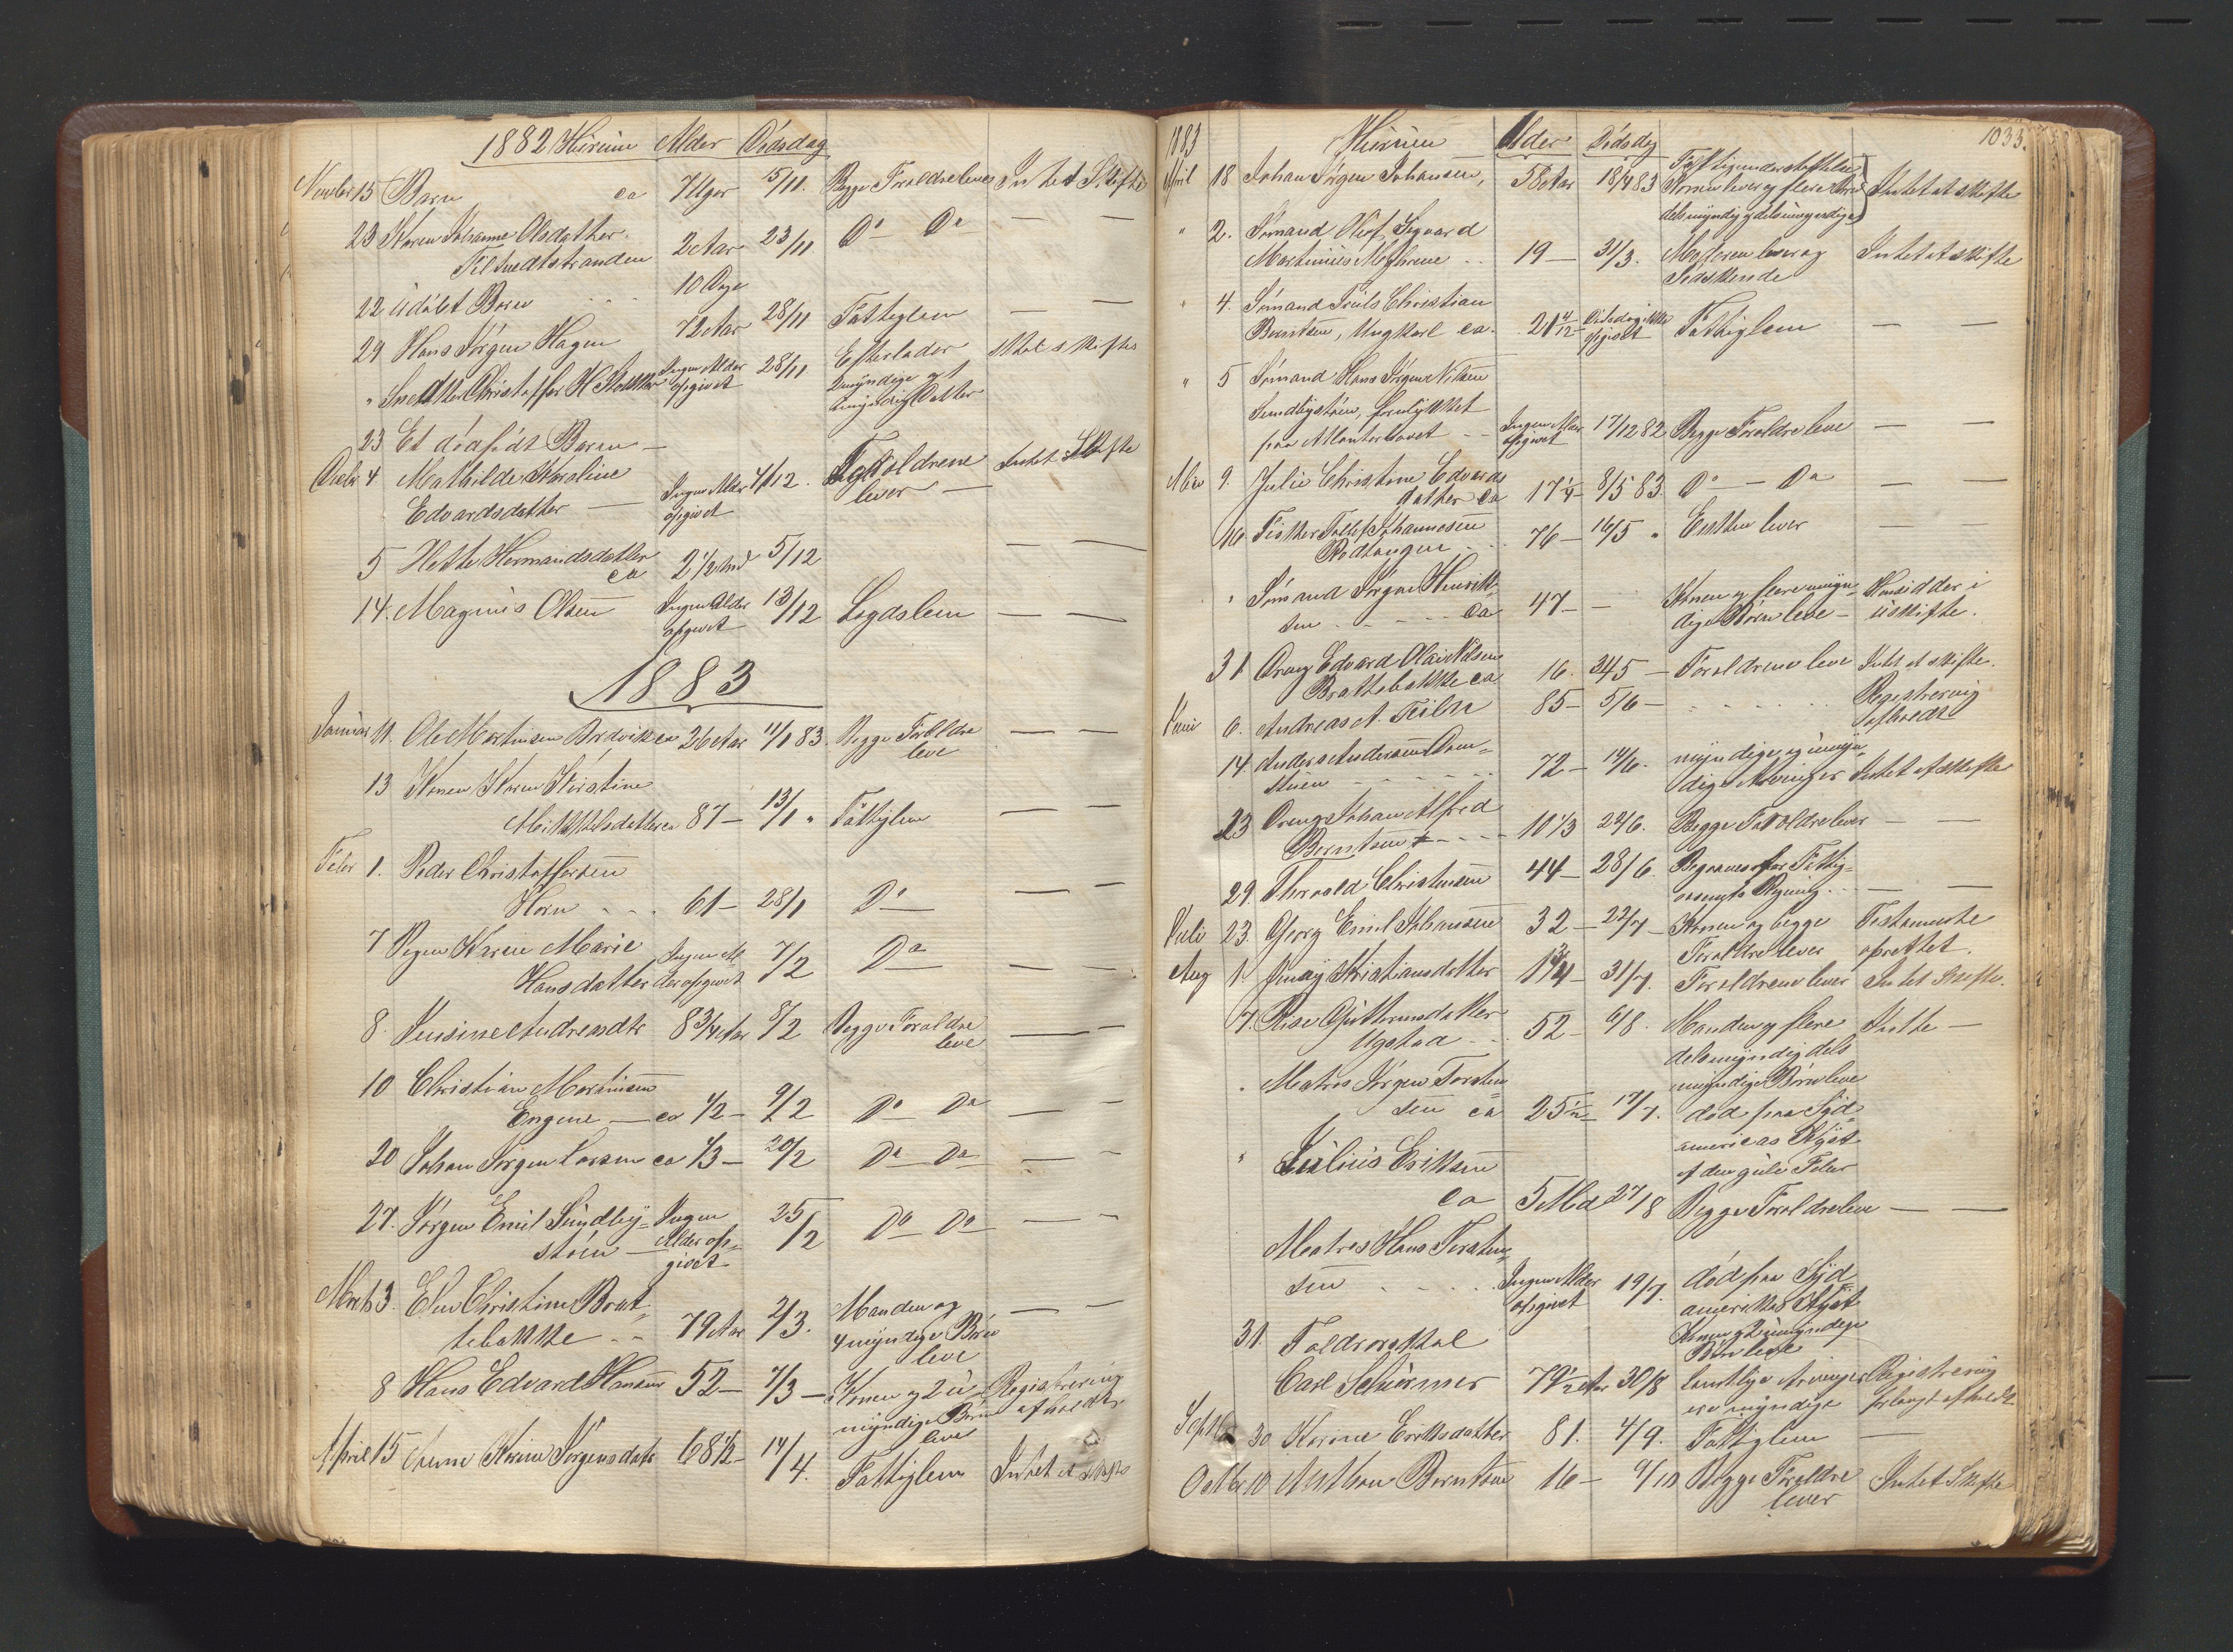 1882 Hurum Alder Dødsdag
Novber 15 Barn ca 7 Uger 5/11. Begge Forældre leve Intet Skifte
23 Karen Johanne Olsdatter.
Tilknedtstranden 2 Aar 23/11 Do Do — —
22 Udøbt Barn 10 Dage
29 Hans Jørgen Hagen 72 Aar 28/11 Fattiglem — —
" Snedker Christoffer H. Ingen Alder opgivet 28/11 Efterlader Skal skiftes
2 myndige og 1
umyndig Datter
23 Et dødfødt Barn —
Decbr 4 Mathilde Karoline
Edvardsdatter — Ingen Alder opgivet 4/12. Forældrene lever — Intet Skifte
5 Hette Hermandsdatter
ca 2 1/2 Md 5/12 — —
14. Magnus Olsen Ingen Alder opgivet 13/12 Lægdslem — —
1883
Januar 11. Ole Martinsen Bredvik ca 26 Aar 11/1 83. Begge Forældre leve — —
13 Konen Karen Kirstine
Mikkelsdatter ca 87 — 13/1 " Fattiglem — —
Febr 1. Peder Christoffersen
Horn . . . 61 — 28/1 Do — —
7 Pigen Karen Marie
Hansdatter Ingen Alder opgivet 7/2 Do — —
8. Jensine Andreasdtr 8 3/4 Aar 8/2 Begge Forældre leve — —
10 Christian Martinsen
Engene — ca 1/2 — 9/2 Do Do — —
20 Johan Jørgen Larsen ca 1/3 — 20/2 Do Do — —
27. Jørgen Emil Sundby-
støen — Ingen Alder opgivet 25/2 Do Do — —
Marts 3. Elen Christine Brat-
tebakke . . 79 Aar 2/3. Manden og — —
4 myndige Børn
leve
8 Hans Edvard Hansen 52 — 7/3 — Konen og 2 u- Registrering
myndige Børn afholdt
leve
April 15 Anne Karine Jørgensdatr 68 1/2 — 14/4. Fattiglem Intet at skifte
1883 Hurum Alder Dødsdag 1033.
April 18 Johan Jørgen Johansen, 58 Aar 18/4 83 Fattigunderstøttelse
Konen lever og flere Børn Intet at skifte
dels myndige og dels umyndige
" 2. Sømand Olaf Sigvard
Martinius Mathrene . . 19 — 31/3. Moderen lever og Intet at skifte
Sødskende
" 4. Sømand Truls Christian
Berntsen, Ungkarl ca. 21 4/12 Dødsdag ikke opgivet Fattiglem — —
" 5 Sømand Hans Jørgen Nilsen
Sundbystøen, forulykket
paa Atlanterhavet — Ingen Alder opgivet 17/12 82 Begge Forældre leve — —
Mai 9. Julie Christine Edvards
datter ca 17 1/4 — 8/5 83 Do — Do — —
16 Fisker Tollef Johannesen
Rødtangen . . 76 — 16/5 " Enken lever —
" Sømand Jørgen Henrik-
sen . . . ca 47 — — Konen og flere umyn- Hensidder i
dige Børn leve — uskifte.
31 Dreng Edvard Olai Nilsen
Brattebakke ca 16. 24/5 — Forældrene leve Intet at skifte.
Juni 6. Andreas A. 85 — 5/6 — . . . . Registrering
afholdt
14 Anders Andersen Dam-
stuen . . . 72 — 14/6. myndige og umyn-
dige Arvinger Intet at skifte
23 Dreng Johan Alfred
Berntsen — 10 1/3 22/6. Begge Forældre lever — —
29. Thorvald Christensen 44 — 28/6. Begraves for Fattig-
væsenets Regning. . . — —
Juli 23. Georg Emil Johansen 32 — 22/7 — Konen og begge Testamente
Forældre lever oprettet.
Aug 1. Jenny Kristiansdatter 1 3/4 — 31/7. Forældrene lever Intet Skifte.
7. Rise Guttormsdatter
Ugstad . . 52 — 6/8. Manden og flere Intet —
dels myndig dels
umyndige Børn leve
" Matros Jørgen Torsten-
sen ca 25 1/2 — 17/7. død paa Syd-
americas Kyst
af den gule Feber
" Julius Eriksen
ca 5 Md 27/8 Begge Forældre leve — —
Matros Hans Torsten-
sen . . . . Ingen Alder opgivet 19/7. død paa Syd
amerikas Kyst
Konen og 2 umyndige
Børn leve
31. Toldroerskarl
Carl Schirmer 79 1/2 Aar 30/8 Samtlige Arvinger Registrering
ere myndige forlangt afholdt
Septbr 30 Karine Eriksdatter 81. 4/9. Fattiglem —
Octbr 10 Anthon Berntsen 16 — 9/10 Begge Forældre Intet Skifte
lever